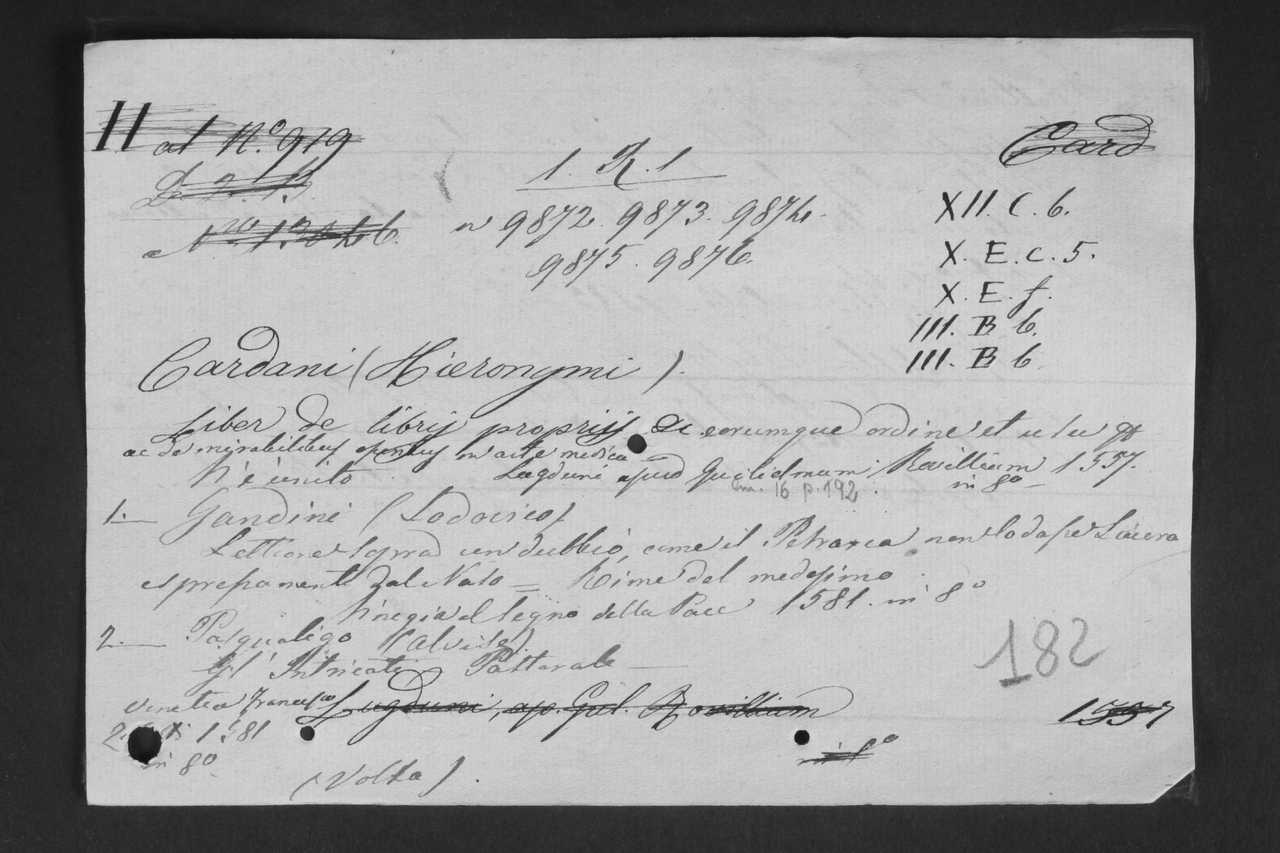 H al N.º 919
Card
1. R. 1
n 9872. 9873. 9874.
9875. 9876.
XII. C. 6.
X. E. C. 5.
X. E. f.
III. B 6.
III. B 6.
Cardani (Hieronymi).
Liber de libris propriis ac eorumque ordine et usu
ac de mirabilibus operibus in arte medica
N'è unito
Lugduni apud Gulielmum Rovillium 1557.
in 8º
16 p. 192
1. Gandini (Lodovico)
Lettione sopra un dubbio, come il Petrarca non lodasse Laura
espressamente dal Naso = Rime del medesimo
Vinegia al segno della Pace 1581. in 8º
2. Pasqualigo (Alvise)
Gl' Intricati Pastorale
Venetia Francesco
1581
in 8º
Lugduni, ap. Gul. Rovillium
1557
in 8º
182
(Volta).